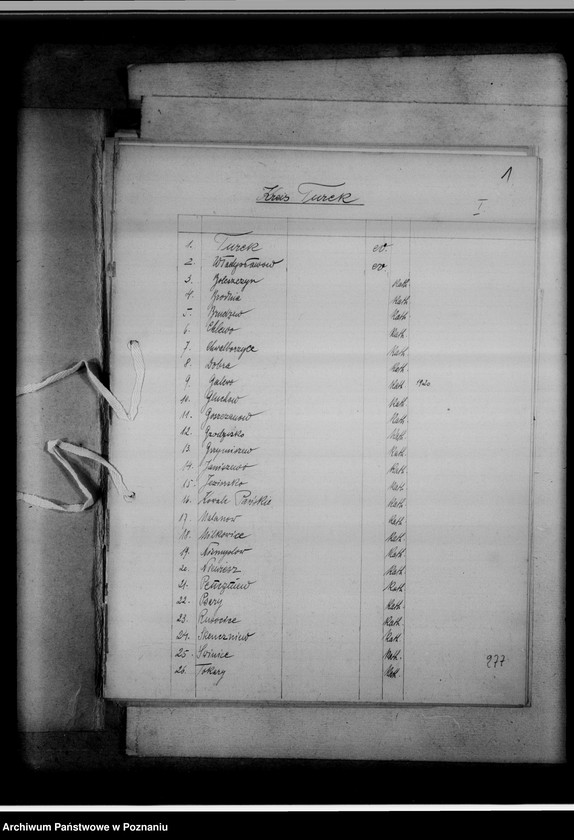 1
Kreis Turek
I
1. Turek ev.
2. Władysławow ev.
3. Boleszczyn Kath.
4. Brodnia Kath.
5. Brudzew Kath.
6. Chlewo Kath.
7. Chwalborzyce Kath.
8. Dobra Kath.
9. Galewo Kath. 1920
10. Gluchow Kath.
11. Goszczanow Kath.
12. Grodzisko Kath.
13. Grzymiszew Kath.
14. Janiszewo Kath.
15. Jeziorsko Kath.
16. Kowale Pańskie Kath.
17. Malanow Kath.
18. Milkowice Kath.
19. Kath.
20. Kath.
21. Kath.
22. Psary Kath.
23. Kath.
24. Skenczniew Kath.
25. Swinice Kath.
26. Tokary Kath.
277
Archiwum Państwowe w Poznaniu